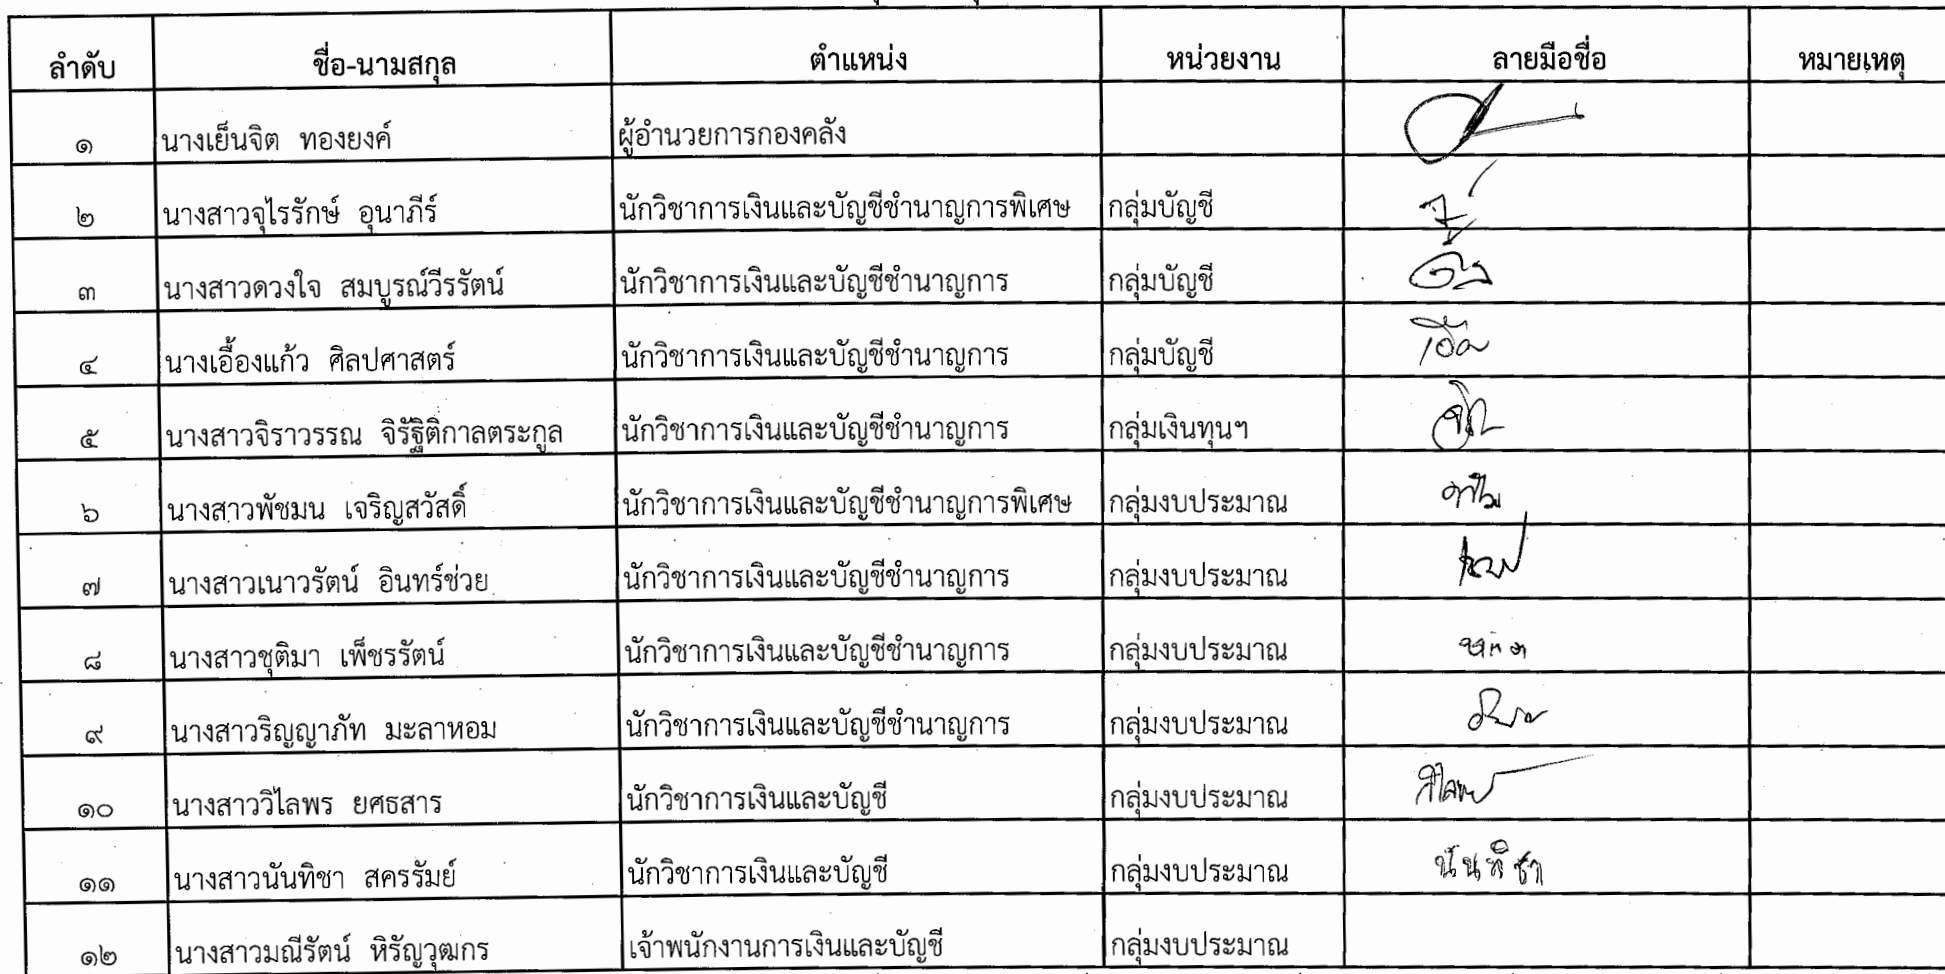 ลำดับ ชื่อ-นามสกุล ตำแหน่ง หน่วยงาน ลายมือชื่อ หมายเหตุ
๑ นางเย็นจิต ทองยงค์ ผู้อำนวยการกองคลัง
๒ นางสาวจุไรรักษ์ อุนาภีร์ นักวิชาการเงินและบัญชีชำนาญการพิเศษ กลุ่มบัญชี
๓ นางสาวดวงใจ สมบูรณ์วีรรัตน์ นักวิชาการเงินและบัญชีชำนาญการ กลุ่มบัญชี
๔ นางเอื้องแก้ว ศิลปศาสตร์ นักวิชาการเงินและบัญชีชำนาญการ กลุ่มบัญชี
๕ นางสาวจิราวรรณ จิรัฐิติกาลตระกูล นักวิชาการเงินและบัญชีชำนาญการ กลุ่มเงินทุนฯ
๖ นางสาวพัชมน เจริญสวัสดิ์ นักวิชาการเงินและบัญชีชำนาญการพิเศษ กลุ่มงบประมาณ
๗ นางสาวเนาวรัตน์ อินทร์ช่วย นักวิชาการเงินและบัญชีชำนาญการ กลุ่มงบประมาณ
๘ นางสาวชุติมา เพ็ชรรัตน์ นักวิชาการเงินและบัญชีชำนาญการ กลุ่มงบประมาณ
๙ นางสาวริญญาภัท มะลาหอม นักวิชาการเงินและบัญชีชำนาญการ กลุ่มงบประมาณ
๑๐ นางสาววิไลพร ยศธสาร นักวิชาการเงินและบัญชี กลุ่มงบประมาณ วิไลพร
๑๑ นางสาวนันทิชา สครรัมย์ นักวิชาการเงินและบัญชี กลุ่มงบประมาณ นันทิชา
๑๒ นางสาวมณีรัตน์ หิรัญวุฒกร เจ้าพนักงานการเงินและบัญชี กลุ่มงบประมาณ